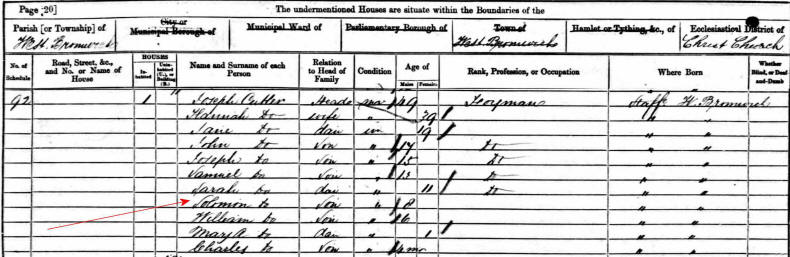 Page 20] The undermentioned Houses are situate within the Boundaries of the
Parish [or Township] of City or Municipal Borough of Municipal Ward of Parliamentary Borough of Town of Hamlet or Tything, &c., of Ecclesiastical District of
West Bromwich West Bromwich Christ Church
No. of Schedule Road, Street, &c., and No. or Name of House HOUSES Inhabited Uninhabited (U.), or Building (B.) Name and Surname of each Person Relation to Head of Family Condition Age of Males Females Rank, Profession, or Occupation Where Born Whether Blind, or Deaf-and-Dumb
92 1 Joseph Cutler Head mar 49 Staffs W. Bromwich
Hannah Do wife " 39 " "
Jane Do dau un 19 " "
John Do Son " 17 Do " "
Joseph Do Son " 15 Do " "
Samuel Do Son " 13 Do " "
Sarah Do dau " 11 Do " "
Solomon Do Son " 8 " "
William Do Son " 6 " "
Mary A Do dau " 1 " "
Charles Do Son " mo " "